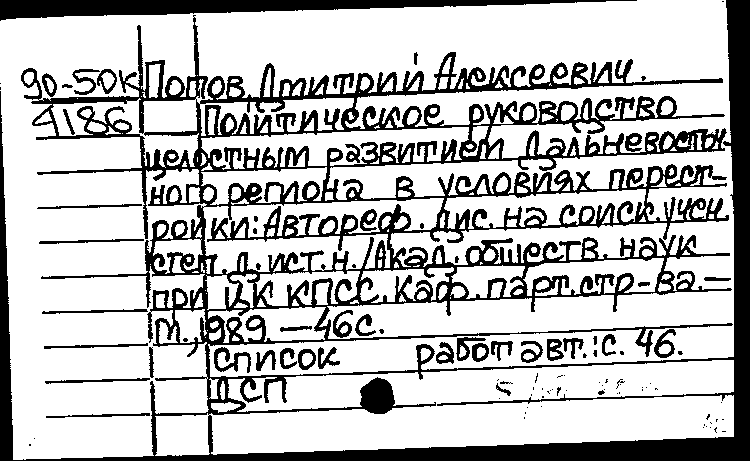 90-50К Попов, Дмитрий Алексеевич.
4186 Политическое руководство
целостным развитием Дальневосточ-
ного региона в условиях перест-
ройки: Автореф. дис. на соиск. учен.
степ. д. ист. н. / Акад. обществ. наук
при ЦК КПСС. Каф. парт. стр-ва. —
М., 1989. — 46 с.
Список работ авт.: с. 46.
ДСП